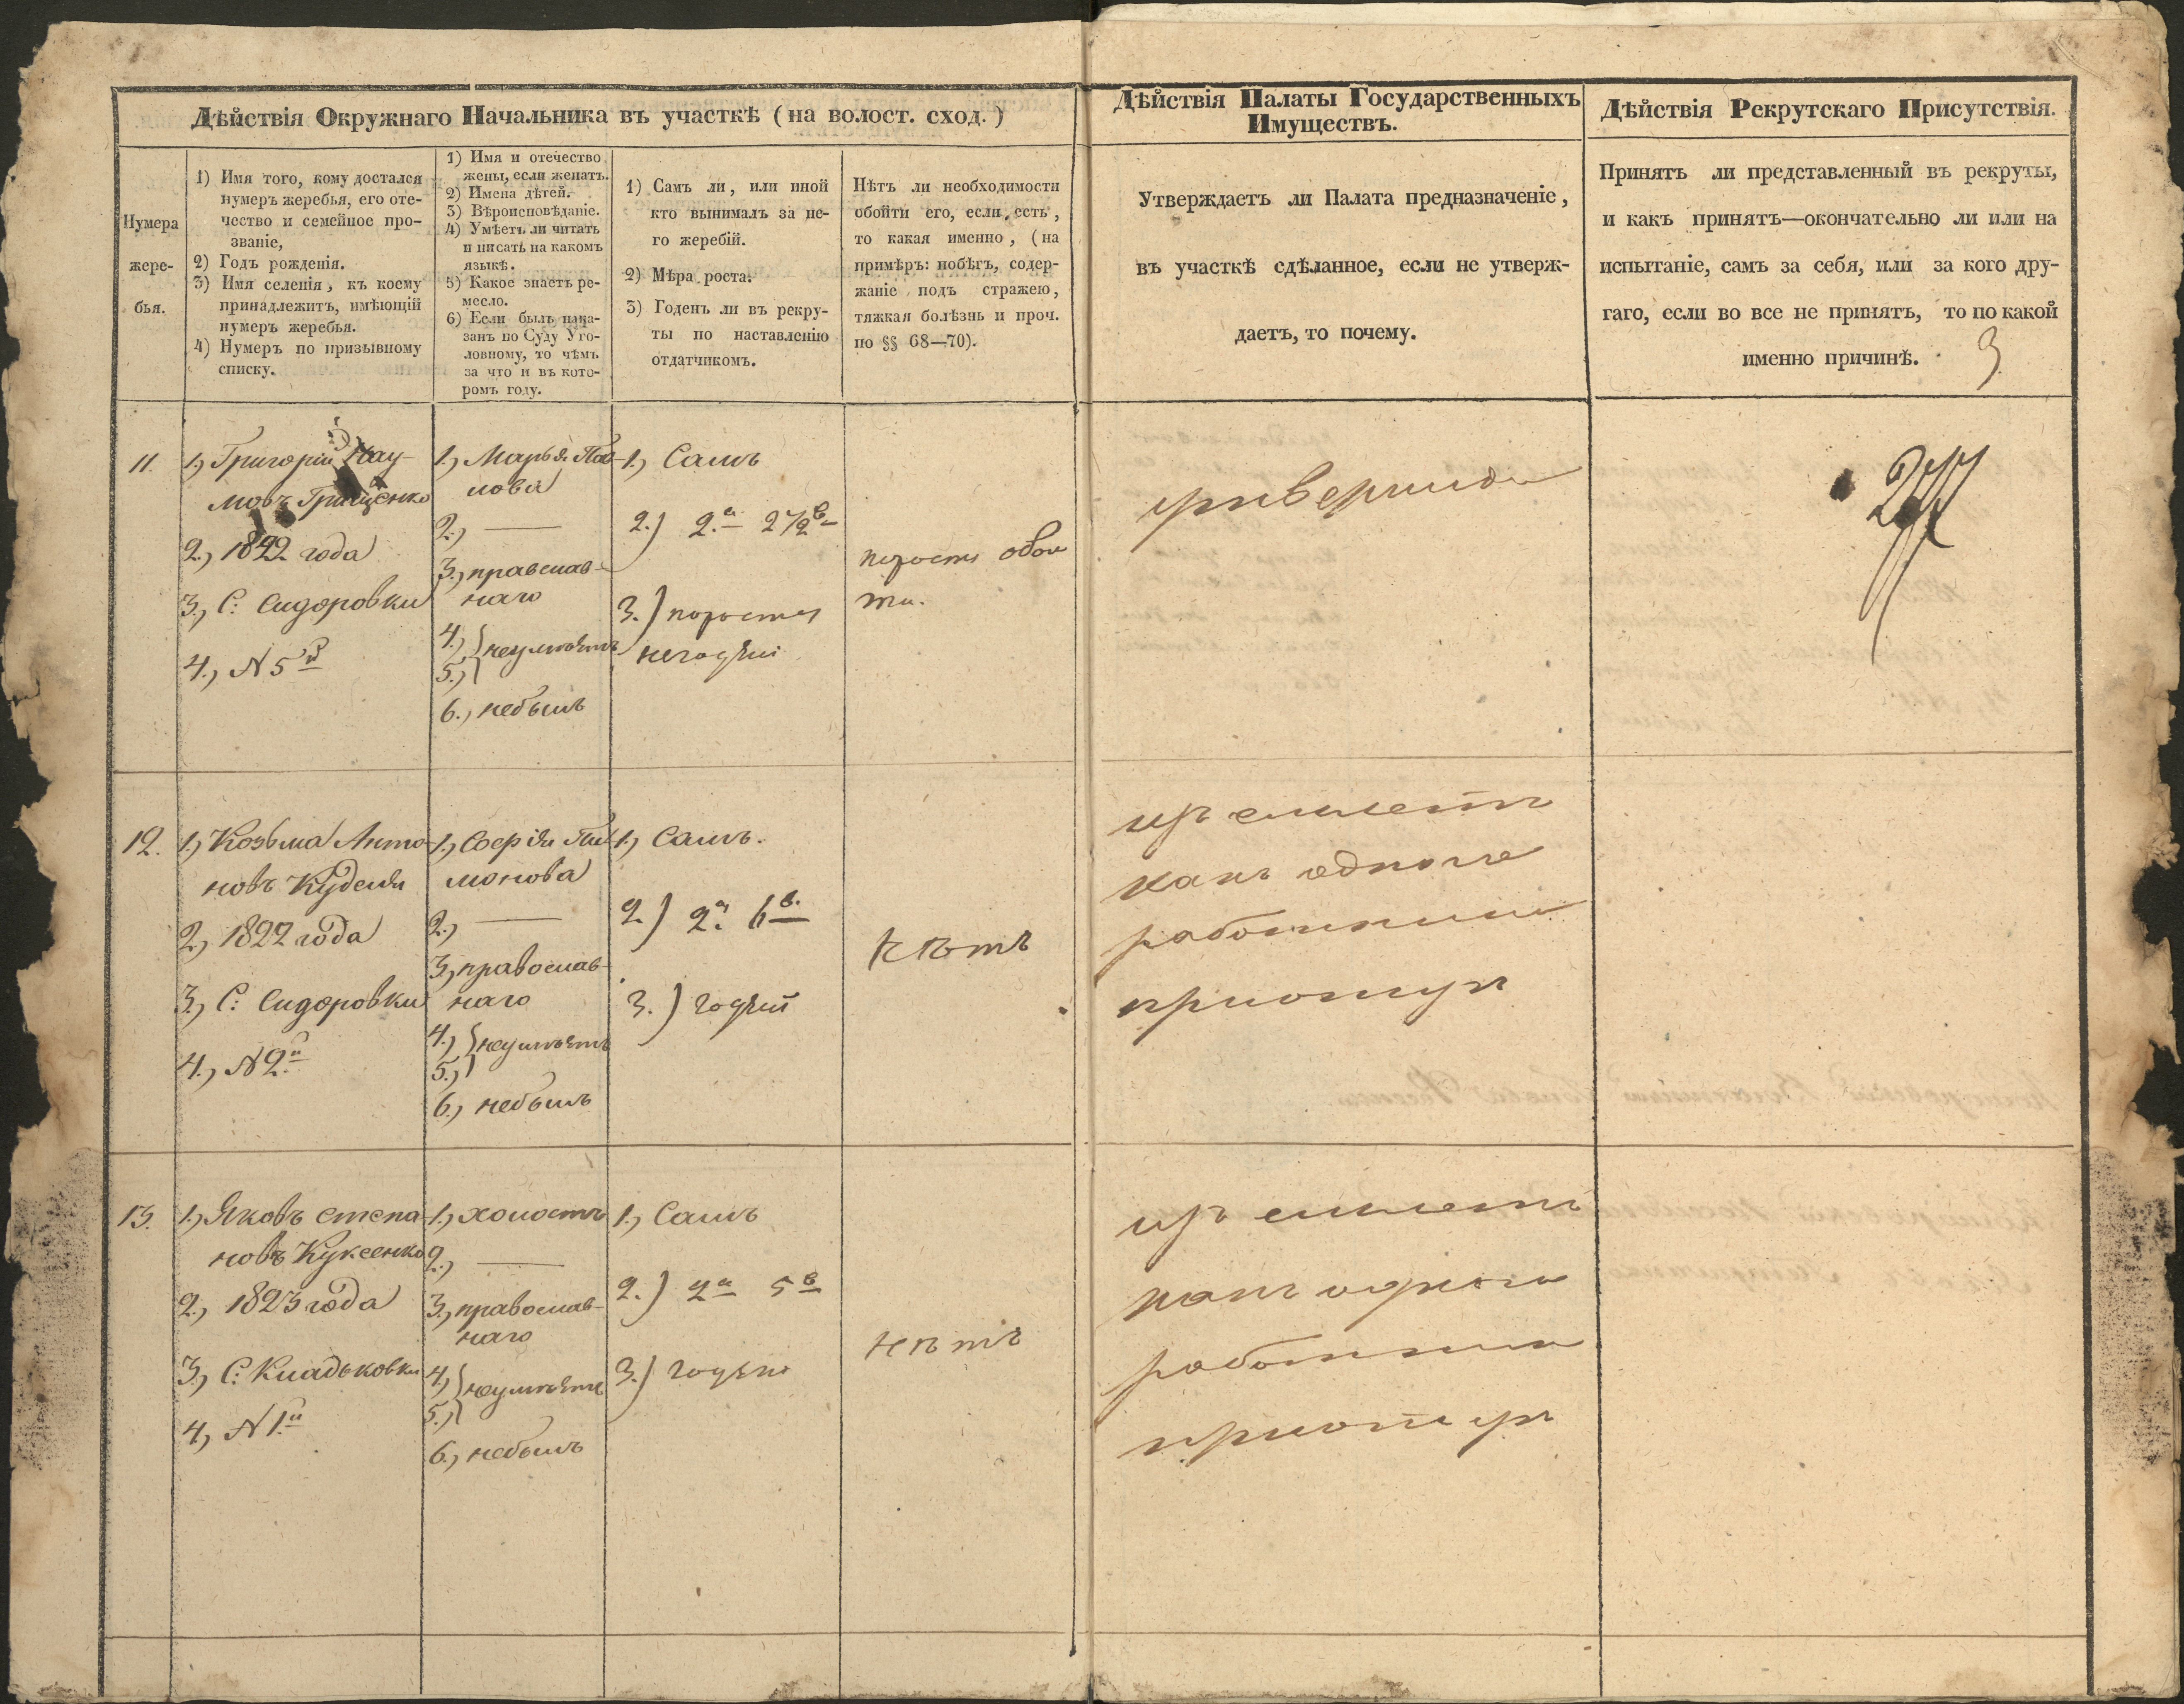 Дѣйствія Окружнаго Начальника въ участкѣ (на волост. сход.)
Нумера
жере-
бья.
1) Имя того, кому достался
нумеръ жеребья, его оте-
чество и семейное про-
званіе,
2) Годъ рожденія.
3) Имя селенія, къ коему
принадлежитъ, имѣющій
нумеръ жеребья.
4) Нумеръ по призывному
списку.
1) Имя и отечество
жены, если женатъ.
2) Имена дѣтей.
3) Вѣроисповѣданіе.
4) Умѣетъ ли читать
и писать на какомъ
языкѣ.
5) Какое знаетъ ре-
месло.
6) Если былъ нака-
занъ по Суду Уго-
ловному, то чѣмъ
за что и въ кото-
ромъ году.
1) Самъ ли, или иной
кто вынималъ за не-
го жеребій.
2) Мѣра роста.
3) Годенъ ли въ рекру-
ты по наставленію
отдатчикомъ.
Нѣтъ ли необходимости
обойти его, если есть,
то какая именно, (на
примѣръ: побѣгъ, содер-
жаніе подъ стражею,
тяжкая болѣзнь и проч.
по §§ 68—70).
Дѣйствія Палаты Государственныхъ
Имуществъ.
Утверждаетъ ли Палата предназначеніе,
въ участкѣ сдѣланное, если не утверж-
даетъ, то почему.
Дѣйствія Рекрутскаго Присутствія.
Принятъ ли представленный въ рекруты,
и какъ принятъ—окончательно ли или на
испытаніе, самъ за себя, или за кого дру-
гаго, если во все не принятъ, то по какой
именно причинѣ.
3
11.
1., Григорій Нау-
мовъ Грищенко
2., 1822 года
3., С: Сидоровки
4., N 5й
1., Марья Пав-
лова
2., —
3., православ-
наго
4.,
5., } неумѣетъ
6., небылъ
1., Самъ
2.) 2.а 2 1/2 в
3.) поросту
негодный
поросту обой
ти.
12.
1., Козьма Анто-
новъ Куделя
2., 1822 года
3., С: Сидоровки
4., N 2й
моновa
2., —
3., православ-
наго
4.,
5., } неумѣетъ
6., небылъ
1., Самъ.
2.) 2а 6в.
3.) годный
нѣтъ
какъ одного
работника
13.
1., Яковъ Степа-
новъ Куксенко
2., 1823 года
3., С: Кладьковки
4., N 1й
1., холостъ
2., —
3., православ-
наго
4.,
5., } неумѣетъ
6., небылъ
1., Самъ
2.) 2а 5в
3.) годный
нѣтъ
какъ одного
работника